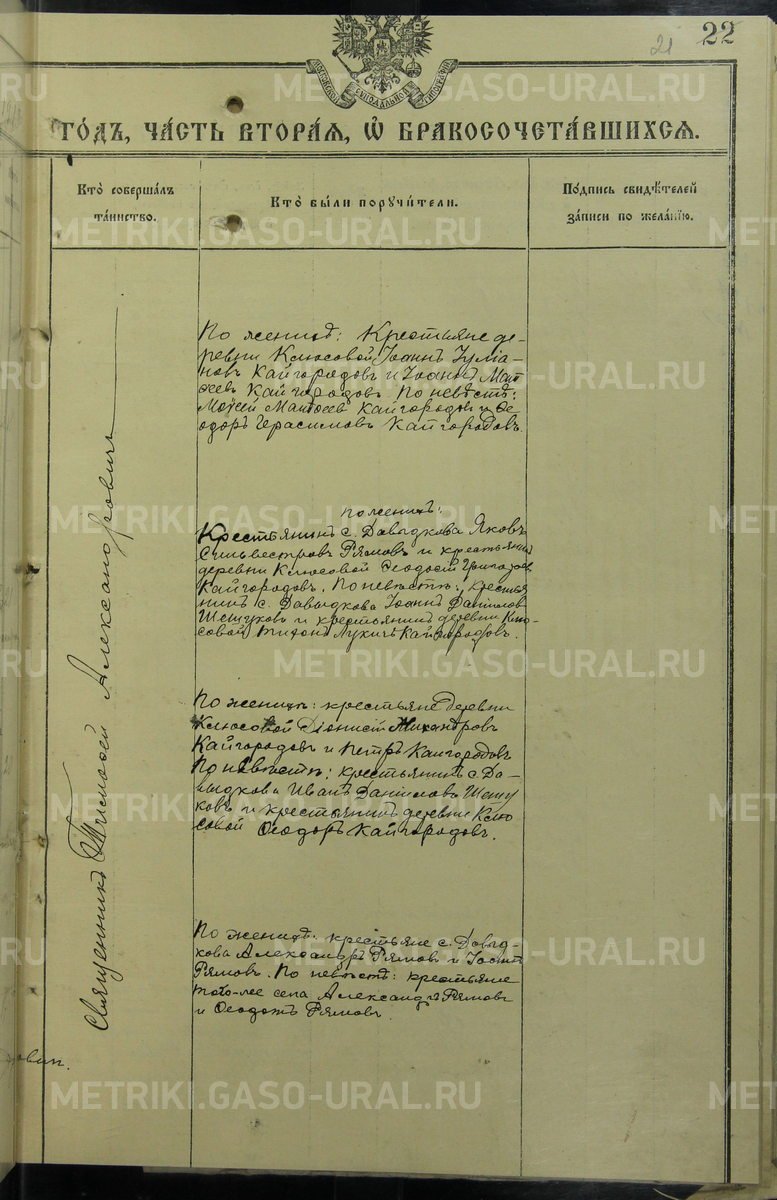 21 22
МОСКОВСКОЙ СѴНОДАЛЬНОЙ ТИПОГРАФІИ
ГО́ДЪ, ЧА́СТЬ ВТОРА́Я, Ѿ БРАКОСОЧЕТА́ВШИХСЯ.
Кто̀ соверша́лъ
та́инство.
Кто̀ бы́ли поручи́тели.
По́дпись свидѣ́телей
за́писи по жела́нію.
Священникъ Тимоѳей Александровичъ
По женихѣ: Крестьяне де-
ревни Клюсовой Іоаннъ Іуліа-
новъ Кайгородовъ и Іоаннъ Мат-
ѳеевъ Кайгородовъ. По невѣстѣ:
Моѵсей Матѳеевъ Кайгородовъ и Ѳе-
одоръ Герасимовъ Кайгородовъ.
По женихѣ:
Крестьянинъ с. Давыдкова Яковъ
Сильвестровъ Рямовъ и крестьянинъ
деревни Клюсовой Ѳеодосій Григорьев
Кайгородовъ. По невѣстѣ: кресть-
янинъ с. Давыдкова Іоаннъ Даниловъ
Шешуковъ и крестьянинъ деревни Клю-
совой Тихонъ Лукичъ Кайгородовъ.
По женихѣ: крестьяне деревни
Клюсовой Діонисій
Кайгородовъ и Петръ Кайгородовъ
По невѣстѣ: крестьянинъ с. Да-
выдкова Иванъ Даниловъ Шешу
ковъ и крестьянинъ деревни Клю
совой Ѳеодоръ Кайгородовъ.
По женихѣ: крестьяне с. Давыд-
кова Александръ Рямовъ и
Рямовъ. По невѣстѣ: крестьяне
того-же села Александръ Рямовъ
и Ѳеодотъ Рямовъ.
METRIKI.GASO-URAL.RU